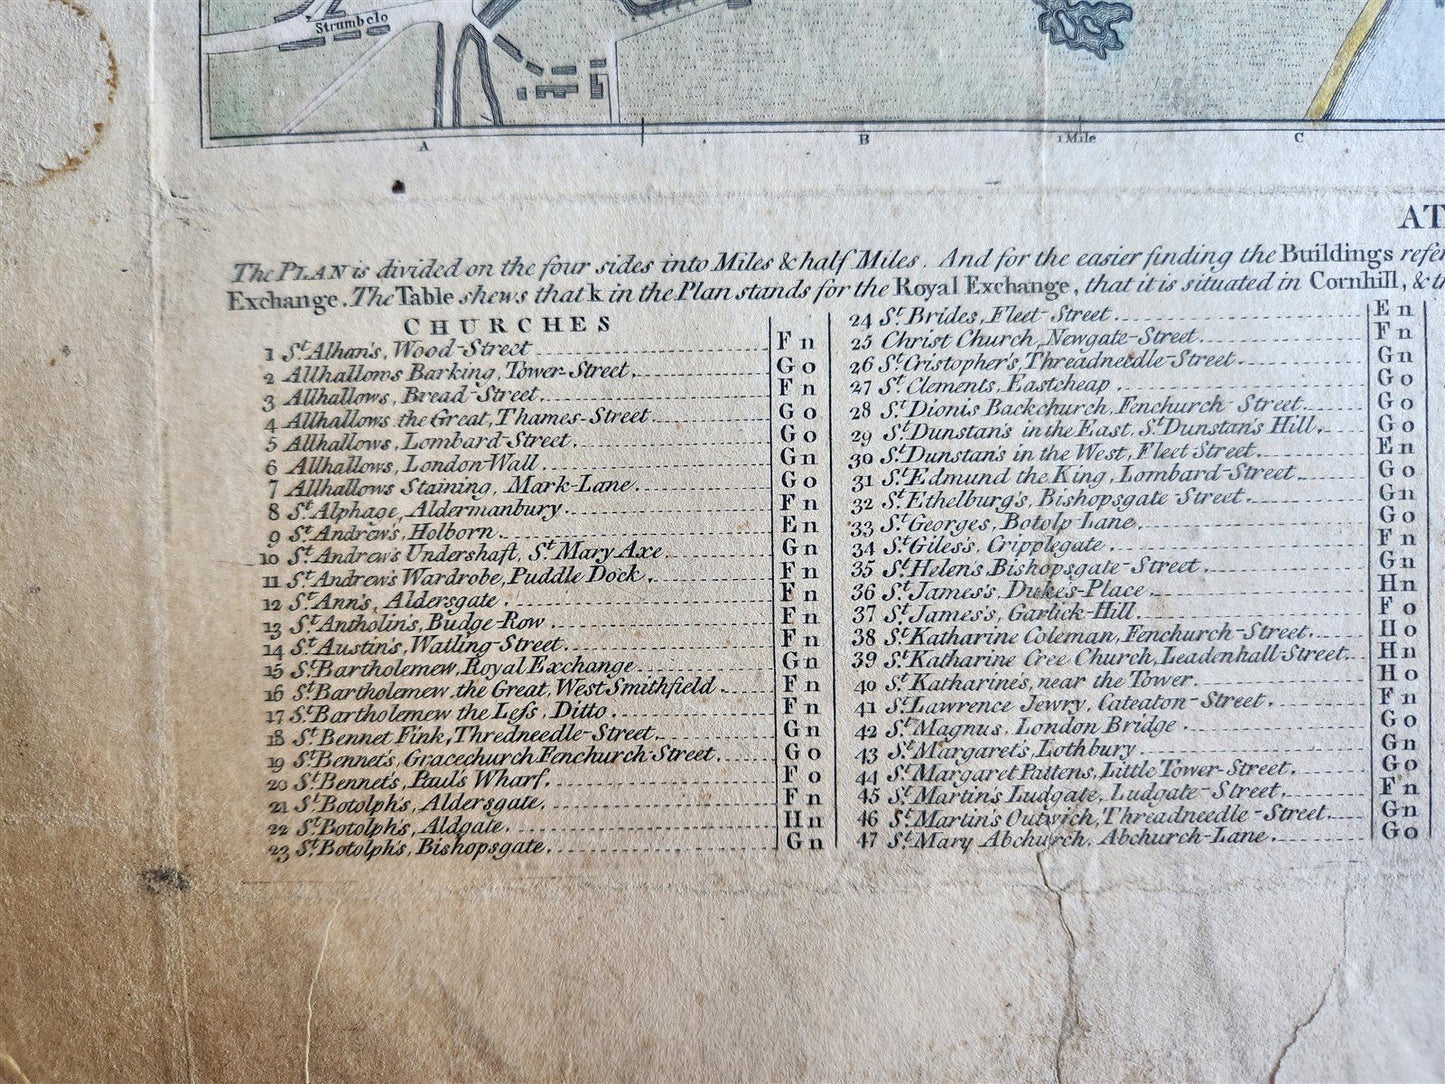 Strumbelo
A
B
1 Mile
C
The PLAN is divided on the four sides into Miles & half Miles. And for the easier finding the Buildings
Exchange. The Table shews that k in the Plan stands for the Royal Exchange, that it is situated in Cornhill, &
CHURCHES
1 St. Alban's, Wood-Street F n
2 Allhallows Barking, Tower-Street. G o
3 Allhallows, Bread-Street. F n
4 Allhallows the Great, Thames-Street. G o
5 Allhallows, Lombard-Street. G o
6 Allhallows, London-Wall G n
7 Allhallows Staining, Mark-Lane. G o
8 St. Alphage, Aldermanbury F n
9 St. Andrew's, Holborn. E n
10 St. Andrew's Undershaft, St. Mary Axe G n
11 St. Andrew's Wardrobe, Puddle Dock. F n
12 St. Ann's, Aldersgate. F n
13 St. Antholin's, Budge-Row F n
14 St. Austin's, Watling-Street. F n
15 St. Bartholemew, Royal Exchange G n
16 St. Bartholemew the Great, West Smithfield F n
17 St. Bartholemew the Less, Ditto. F n
18 St. Bennet Fink, Thredneedle-Street. G n
19 St. Bennet's, Gracechurch Fenchurch-Street. G o
20 St. Bennet's, Paul's Wharf. F o
21 St. Botolph's, Aldersgate. F n
22 St. Botolph's, Aldgate. H n
23 St. Botolph's, Bishopsgate. G n
24 St. Brides, Fleet-Street E n
25 Christ Church, Newgate-Street F n
26 St. Cristopher's, Threadneedle-Street. G n
27 St. Clements, Eastcheap G o
28 St. Dionis Backchurch, Fenchurch-Street. G o
29 St. Dunstan's in the East, St. Dunstan's Hill. G o
30 St. Dunstan's in the West, Fleet Street. E n
31 St. Edmund the King, Lombard-Street. G o
32 St. Ethelburg's, Bishopsgate Street. G n
33 St. Georges, Botolp Lane. G o
34 St. Giles's, Cripplegate F n
35 St. Helen's, Bishopsgate-Street. G n
36 St. James's, Duke's-Place H n
37 St. James's, Garlick-Hill. F o
38 St. Katharine Coleman, Fenchurch-Street. H o
39 St. Katharine Cree Church, Leadenhall-Street. H n
40 St. Katharine's, near the Tower. H o
41 St. Lawrence Jewry, Cateaton-Street. F n
42 St. Magnus, London Bridge G o
43 St. Margaret's, Lothbury G n
44 St. Margaret Pattens, Little Tower-Street. G o
45 St. Martin's Ludgate, Ludgate-Street. F n
46 St. Martin's Outwich, Threadneedle-Street. G n
47 St. Mary Abchurch, Abchurch-Lane. G o